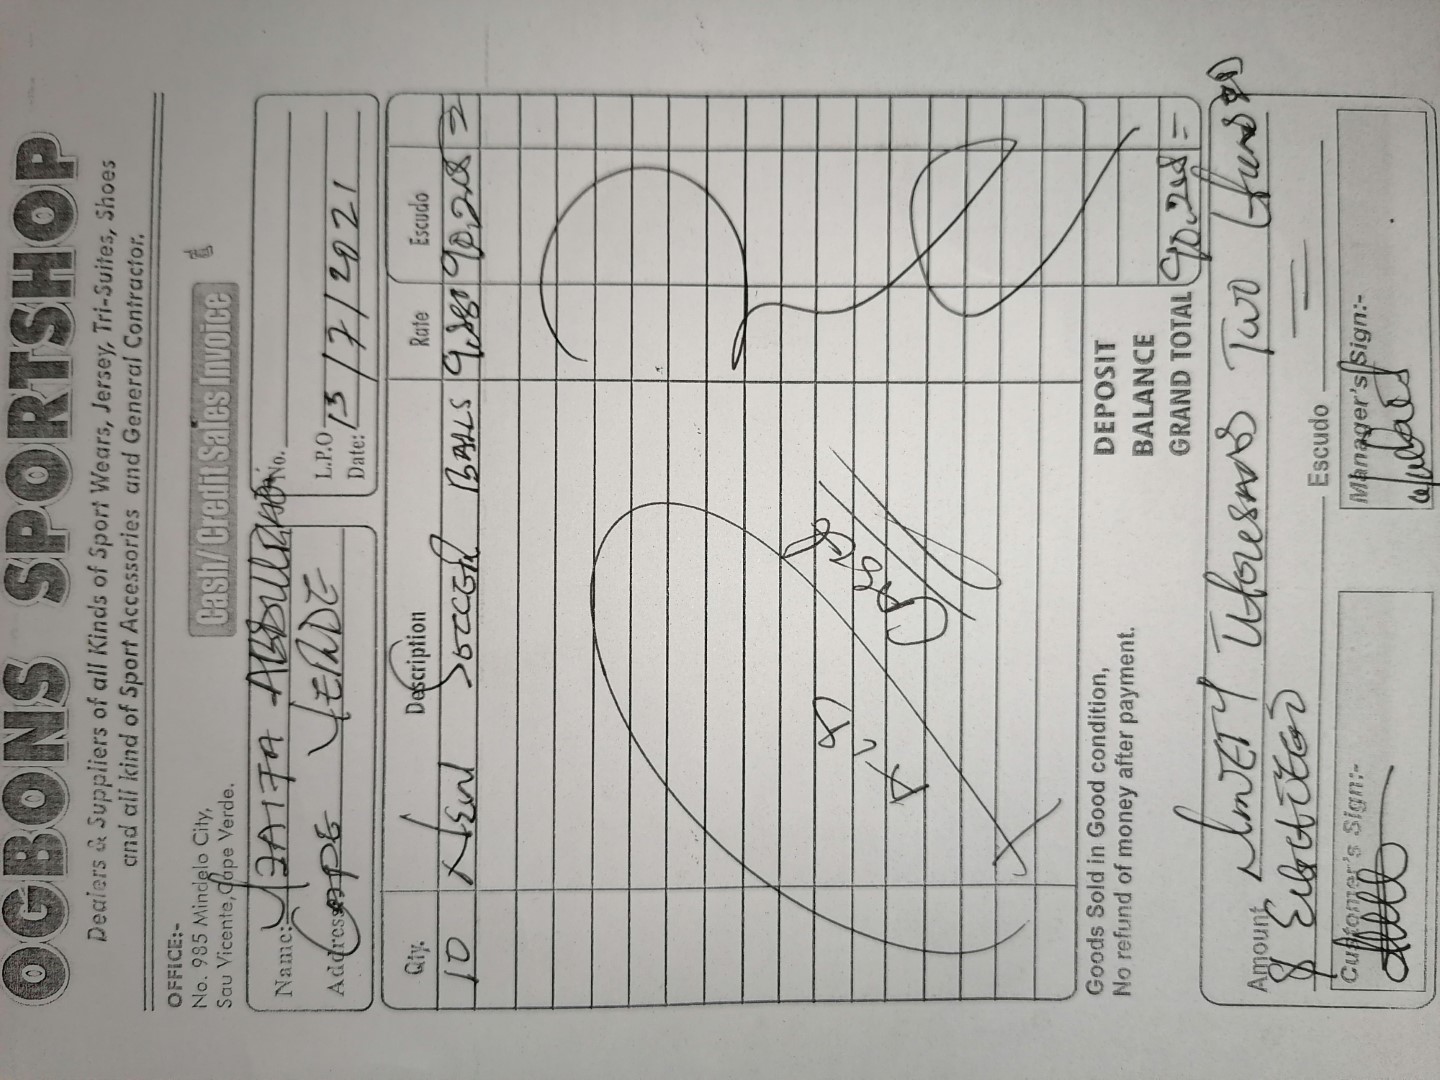 OGBONS SPORTSHOP
Dealers & Suppliers of all Kinds of Sport Wears, Jersey, Tri-Suites, Shoes
and all kind of Sport Accessories and General Contractor.
OFFICE:-
No. 985 Mindelo City,
Sau Vicente, Cape Verde.
Cash/Credit Sales Invoice
Name: YAHYA ABDULLAHI
Address CAPE VERDE
No.
L.P.O
Date: 13/7/2021
Qty. Description Rate Escudo
10 NEW SOCCER BALLS 90,218 =
Goods Sold in Good condition,
No refund of money after payment.
DEPOSIT
BALANCE
GRAND TOTAL 90,218 =
Amount NINETY THOUSAND TWO HUNDRED
& EIGHTEEN
Escudo
Customer's Sign:-
Manager's Sign:-